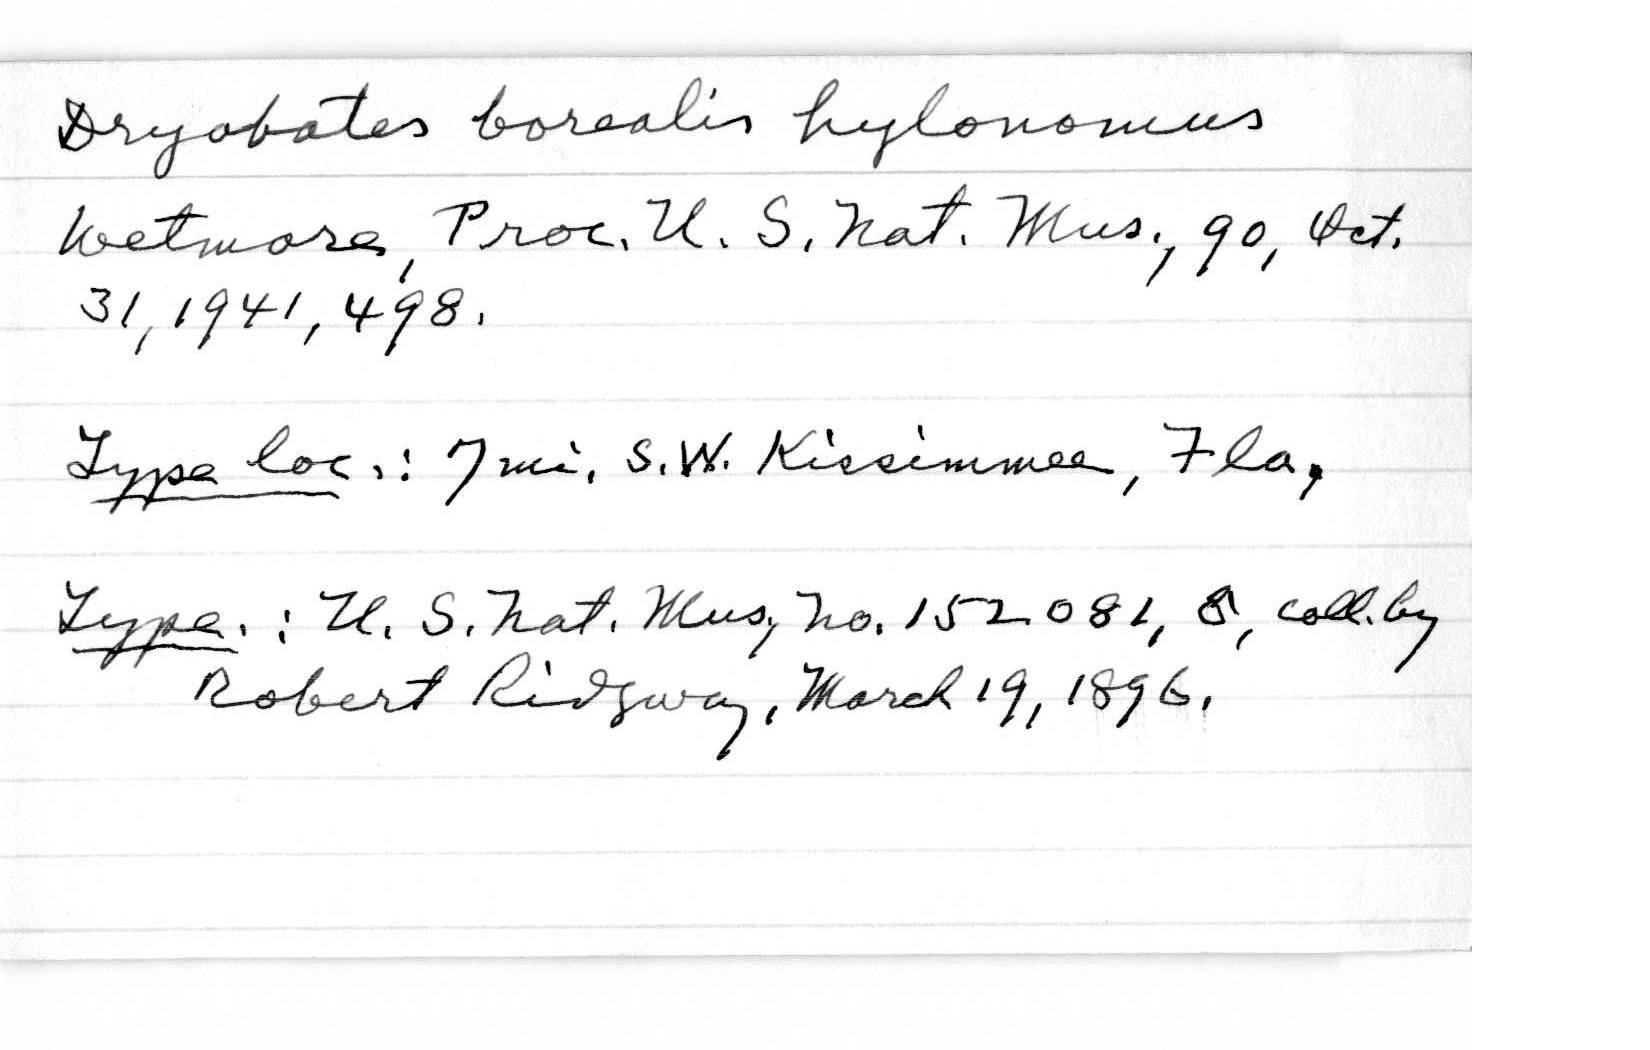 Dryobates borealis hylonomus
Wetmore, Proc. U. S. Nat. Mus., 90, Oct.
31, 1941, 498.
Type loc.: 7 mi. S.W. Kissimmee, Fla.
Type.: U. S. Nat. Mus, No. 152081, ♂, coll. by
Robert Ridgway, March 19, 1896.